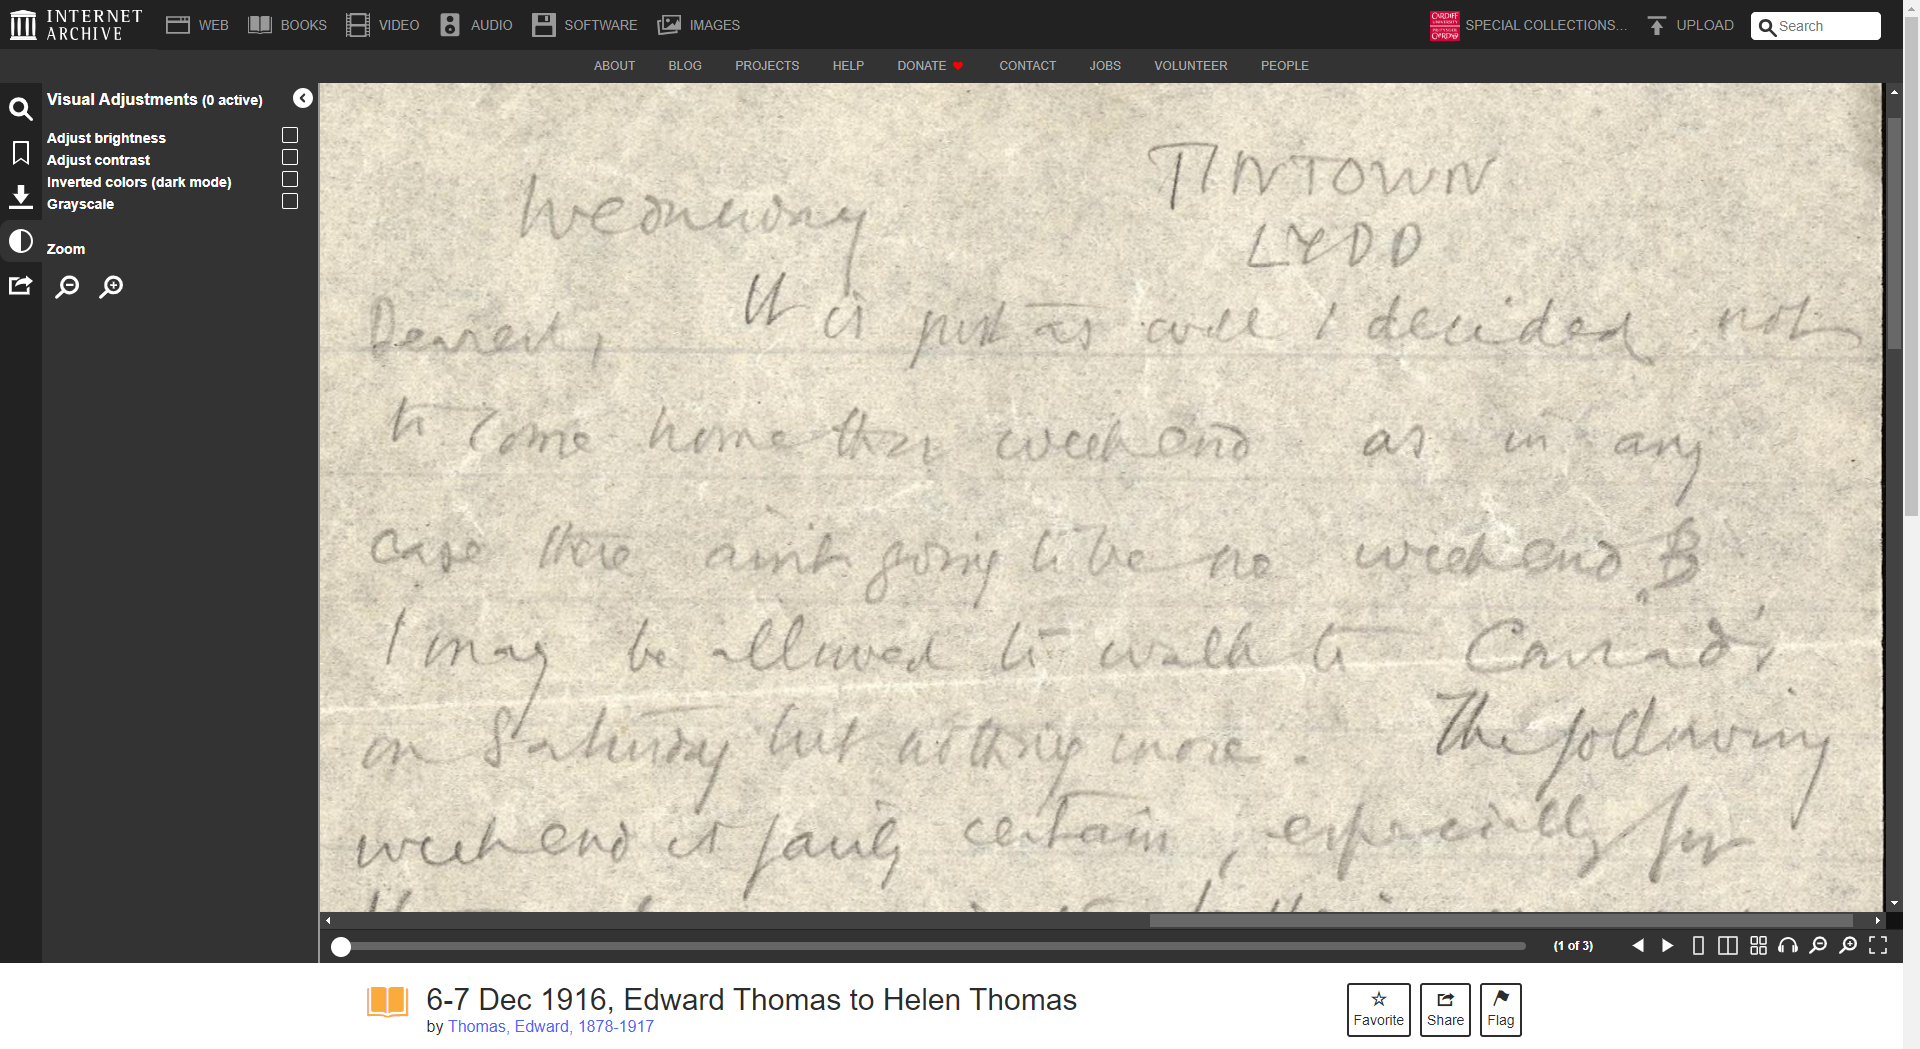 INTERNET ARCHIVE
WEB
BOOKS
VIDEO
AUDIO
SOFTWARE
IMAGES
CARDIFF UNIVERSITY PRIFYSGOL CAERDYDD
SPECIAL COLLECTIONS...
UPLOAD
Search
ABOUT
BLOG
PROJECTS
HELP
DONATE
CONTACT
JOBS
VOLUNTEER
PEOPLE
Visual Adjustments (0 active)
Adjust brightness
Adjust contrast
Inverted colors (dark mode)
Grayscale
Zoom
TINTOWN
Wednesday
LYDD
Dearest, It is just as well I decided not
to come home this weekend as in any
case there aint going to be no weekend.
I may be allowed to walk to Conrad's
on Saturday but nothing more. The following
weekend is fairly certain, especially for
(1 of 3)
6-7 Dec 1916, Edward Thomas to Helen Thomas
by Thomas, Edward, 1878-1917
Favorite
Share
Flag